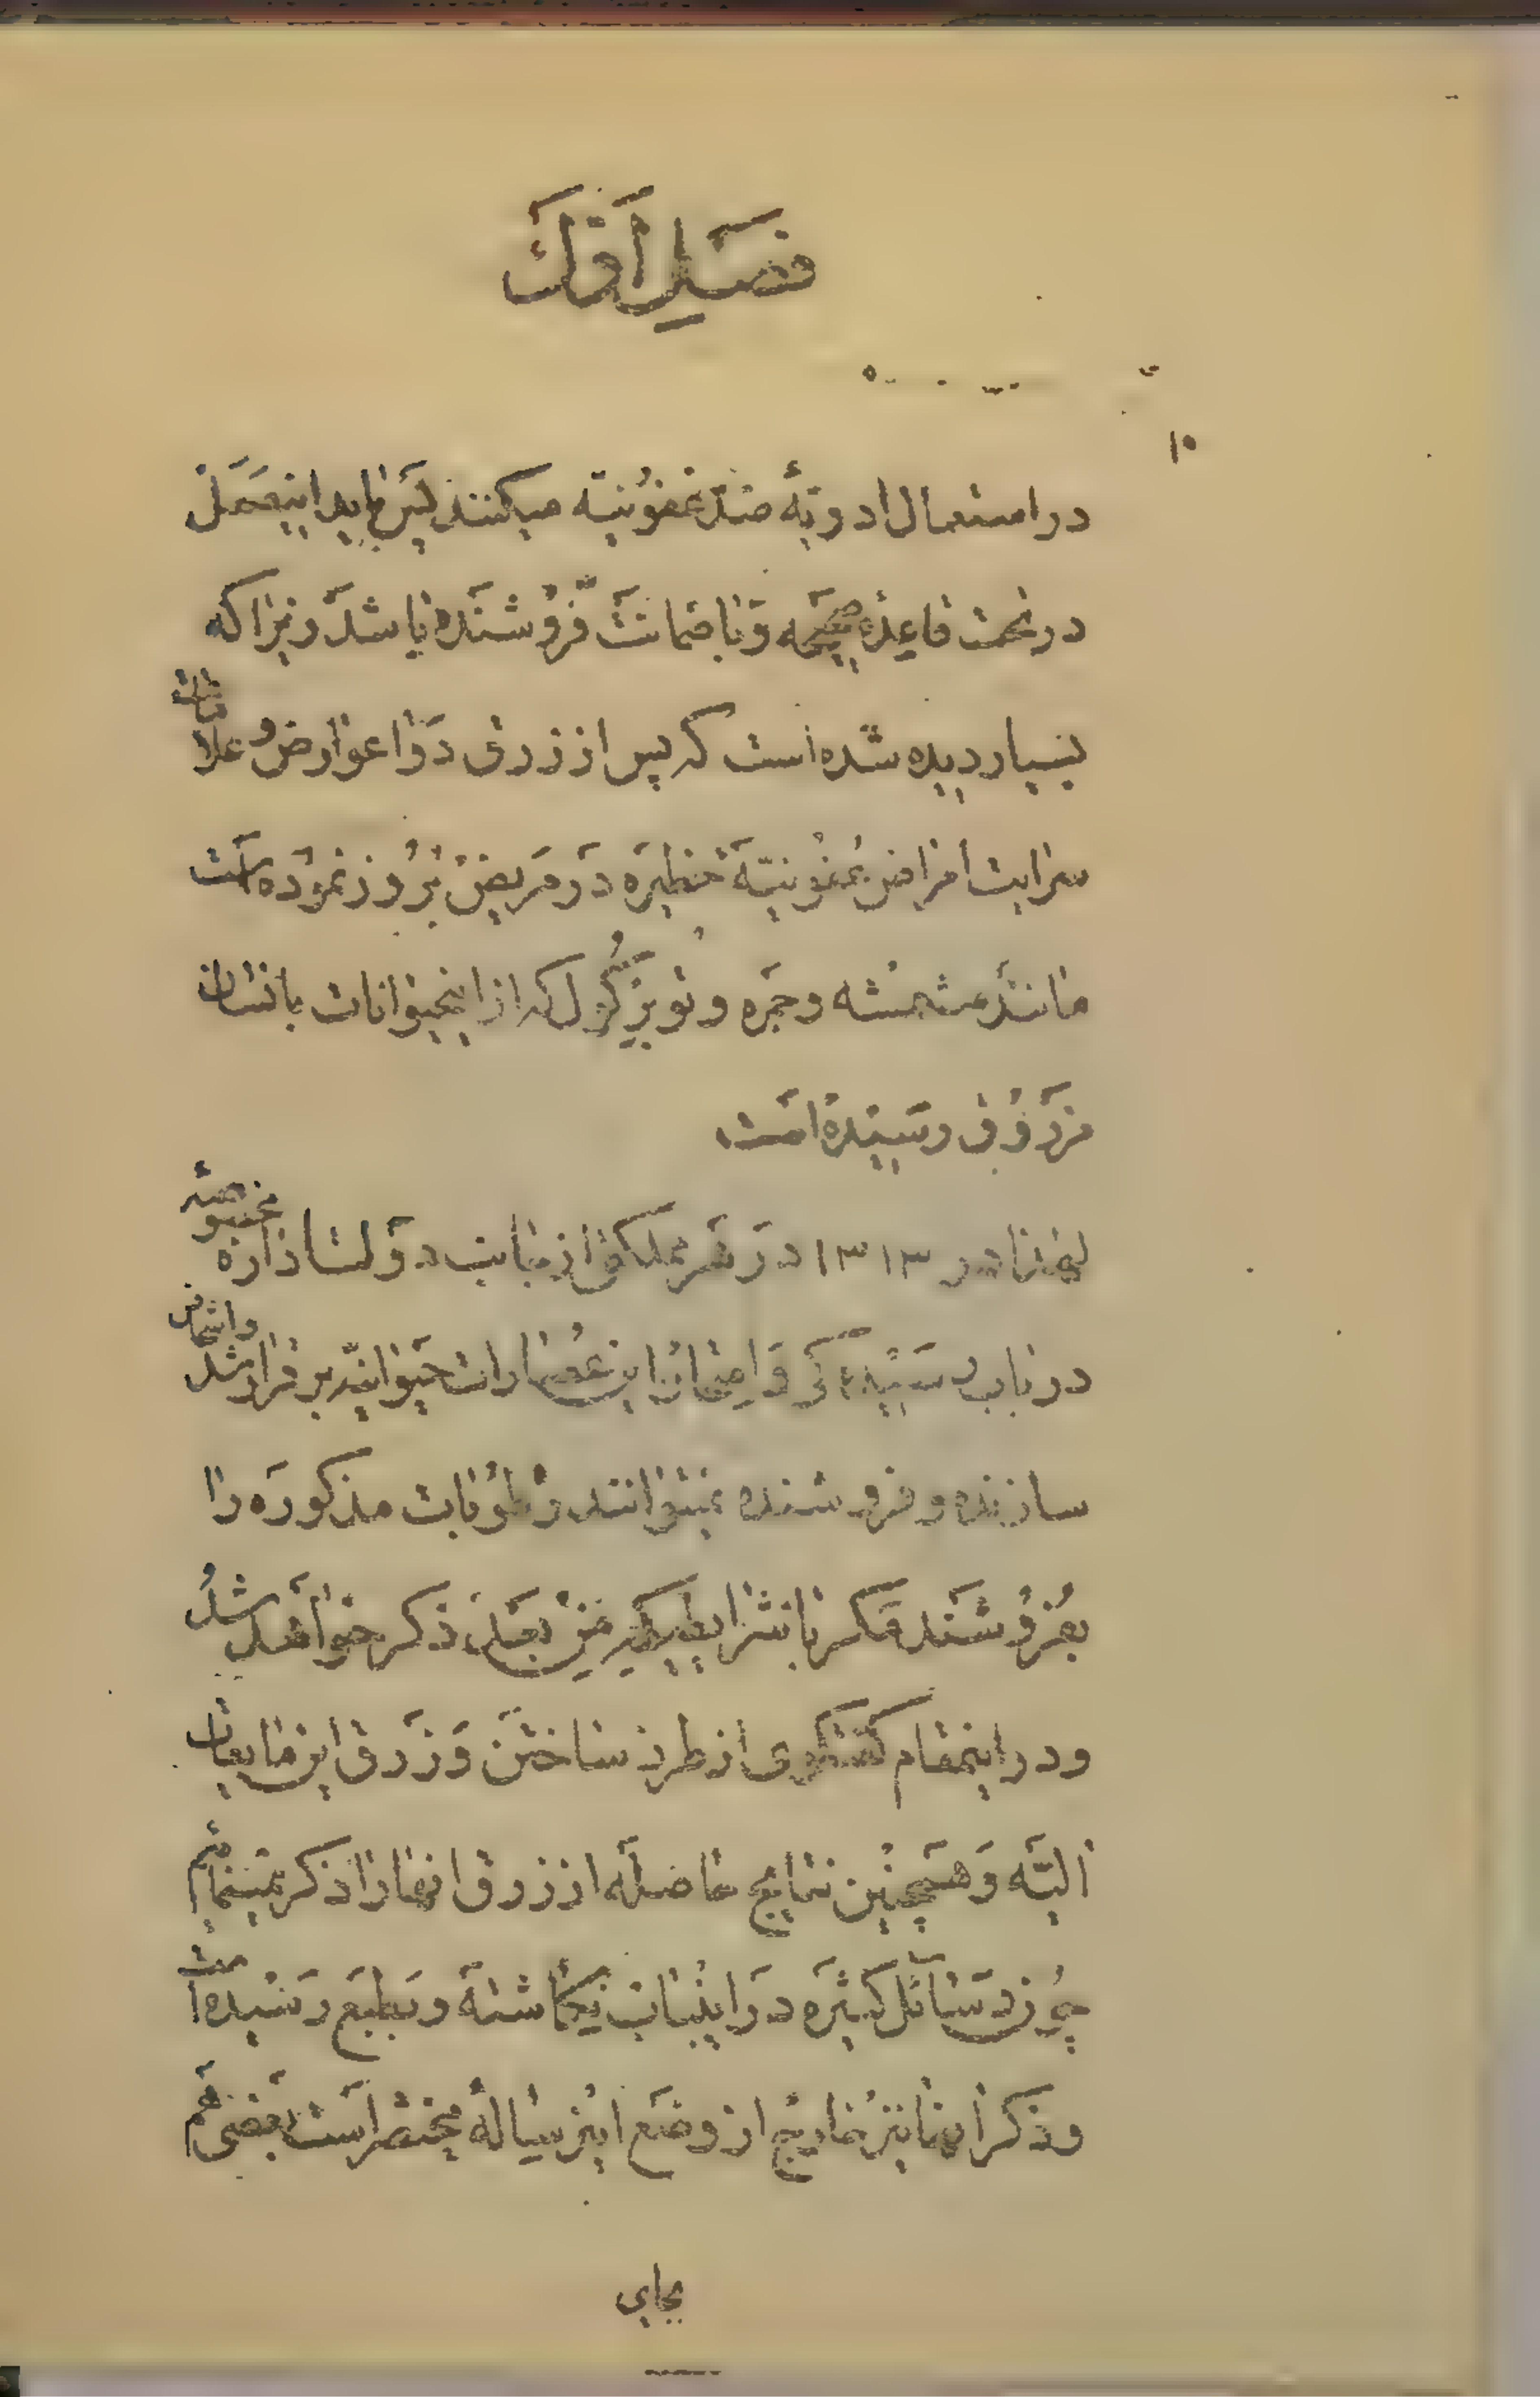 فصَلِ اَوَّل
۱۰
در استعمال ادویهٔ ضدّ عفونیّه میکنند پس باید اینعمل
در تحت قاعدهٔ صحیحه و با ضمانت فروشنده باشد زیرا که
بسیار دیده شده است که پس از زرق دوا عوارض و علامات
سرایت امراض عفونیّهٔ خطیره در مریض بروز نموده است
مانند مشمشه و جمره و توبرکول که از اینحیوانات بانسان
مزروق رسیده است.
لهذا در ۱۳۱۳ در هر مملکتی از جانب دولت اداره مخصوصهٔ
در باب رسیدگی و امتحان این عصارات حیوانیّه برقرار شد و اشخاص
سازنده و فروشنده نمیتوانند مذکوره را
بفروشند مگر با شرایطیکه در ذکر خواهد شد
و در اینمقام گفتگوی از طرز ساختن و زرق این مایعات
آلیّه و همچنین نتایج حاصله از زرق آنها را ذکر نمینمائیم
چون رسائل کثیره در اینباب نگاشته و بطبع رسیده است
و ذکر آنها نیز خارج از وضع این رساله مختصر است بعضی هم
بجای